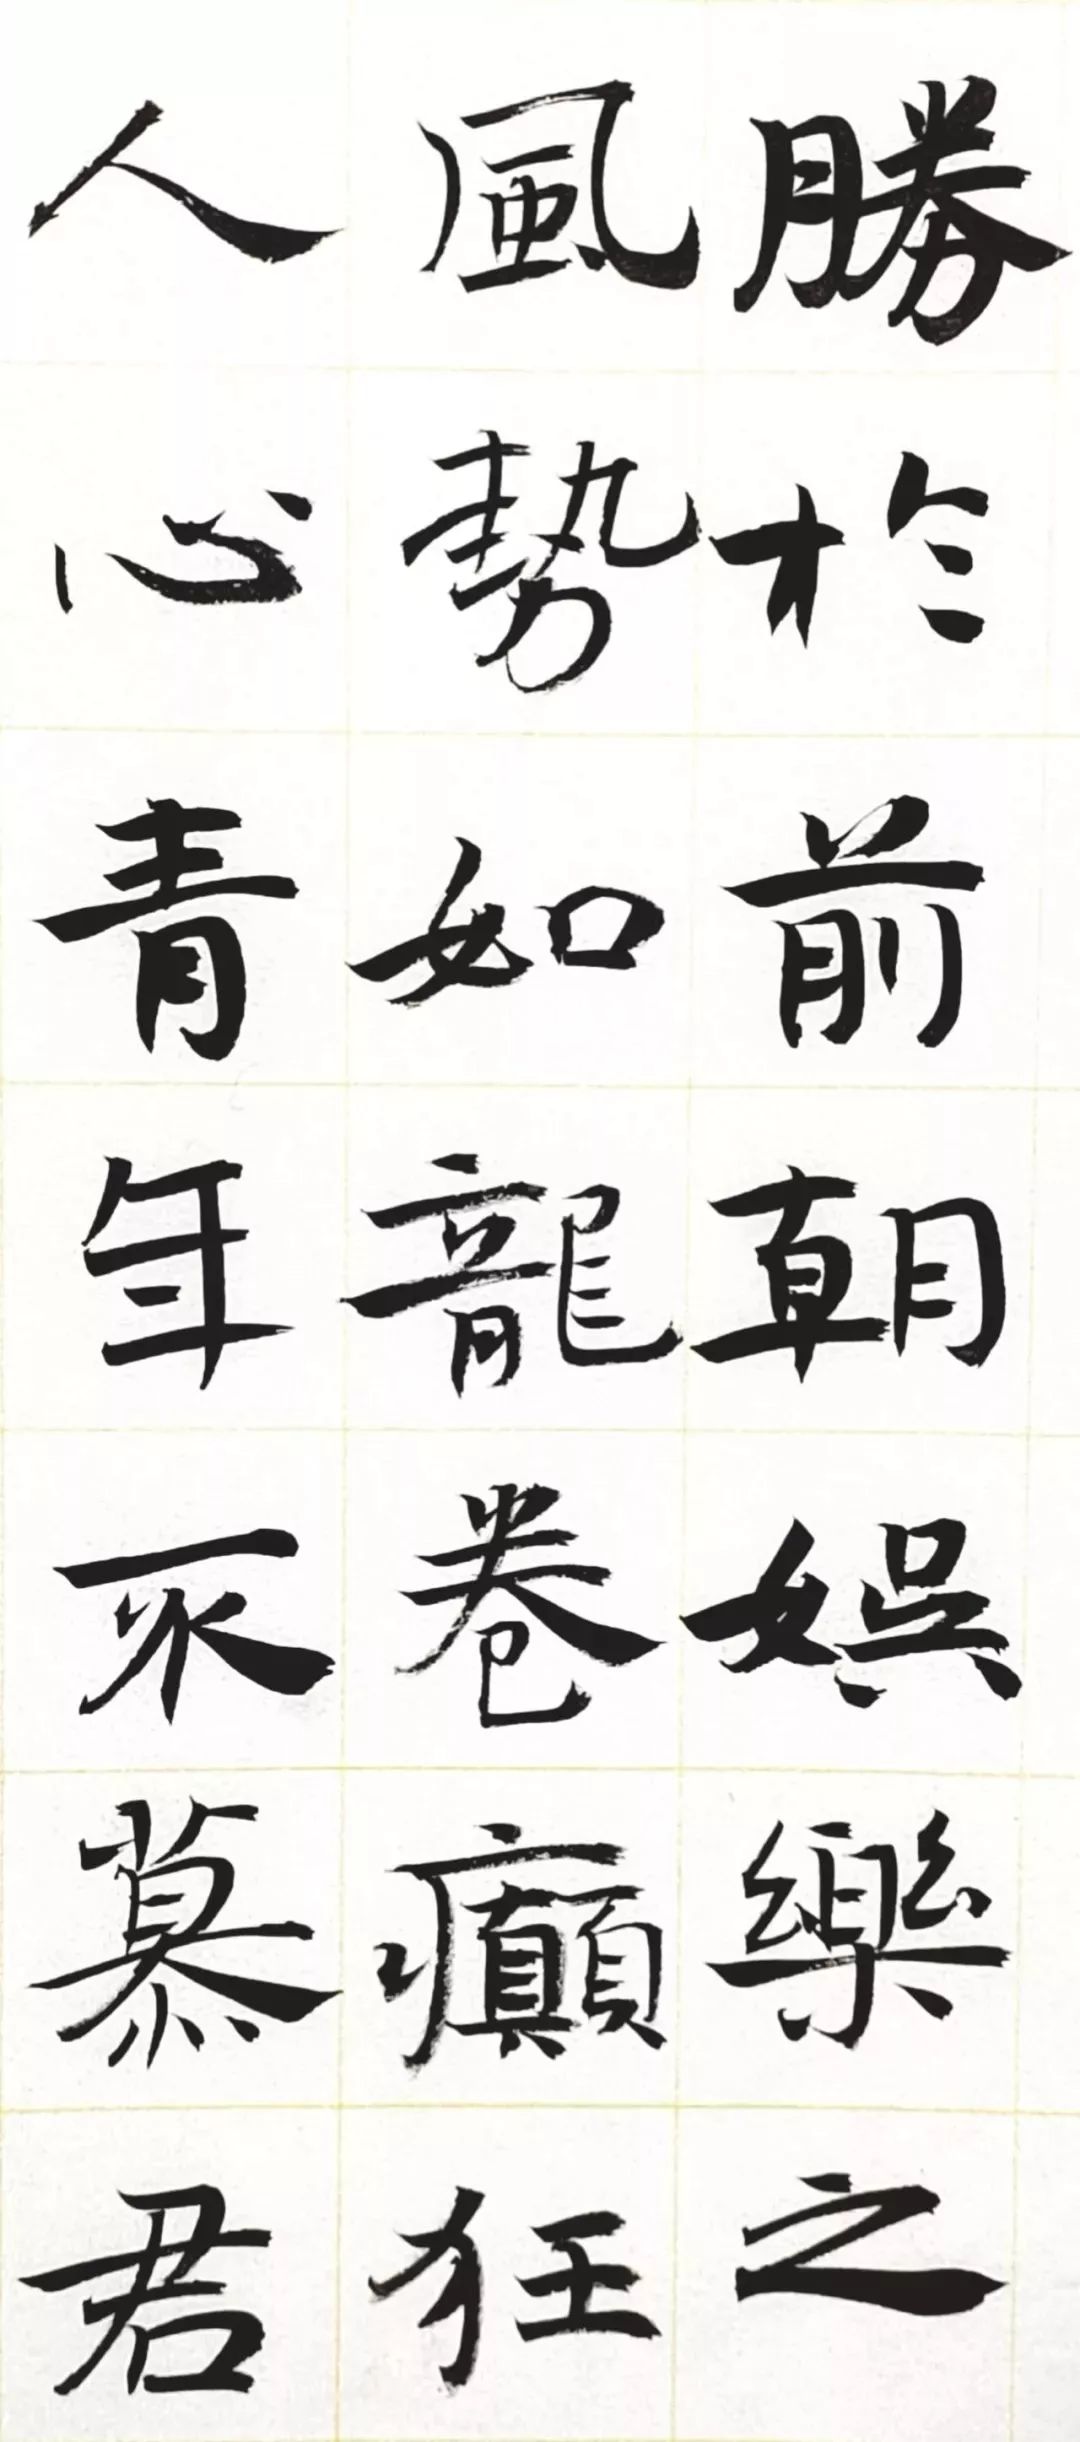 勝於前朝娛樂之
風勢如龍卷癲狂
人心青年不慕君